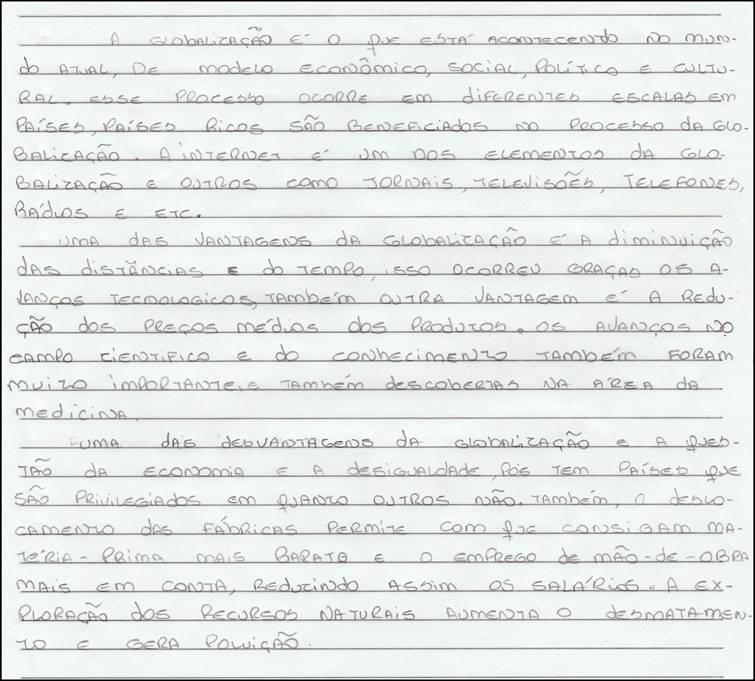 A GLOBALIZAÇÃO É O QUE ESTÁ ACONTECENDO NO MUN-
DO ATUAL, DE MODELO ECONÔMICO, SOCIAL, POLÍTICO E CULTU-
RAL. ESSE PROCESSO OCORRE EM DIFERENTES ESCALAS EM
PAÍSES, PAÍSES RICOS SÃO BENEFICIADOS NO PROCESSO DA GLO-
BALIZAÇÃO. A INTERNET É UM DOS ELEMENTOS DA GLO-
BALIZAÇÃO E OUTROS COMO JORNAIS, TELEVISÕES, TELEFONES,
RÁDIOS E ETC.
UMA DAS VANTAGENS DA GLOBALIZAÇÃO É A DIMINUIÇÃO
DAS DISTÂNCIAS E DO TEMPO, ISSO OCORREU GRAÇAS OS A-
VANÇOS TECNOLOGICOS, TAMBÉM OUTRA VANTAGEM É A REDU-
ÇÃO DOS PREÇOS MÉDIOS DOS PRODUTOS. OS AVANÇOS NO
CAMPO CIENTIFICO E DO CONHECIMENTO TAMBÉM FORAM
MUITO IMPORTANTE, E TAMBÉM DESCOBERTAS NA ÁREA DA
MEDICINA.
UMA DAS DESVANTAGENS DA GLOBALIZAÇÃO E A QUES-
TÃO DA ECONOMIA E A DESIGUALDADE, POIS TEM PAÍSES QUE
SÃO PRIVILEGIADOS EM QUANTO OUTROS NÃO. TAMBÉM, O DESLO-
CAMENTO DAS FÁBRICAS PERMITE COM QUE CONSIGAM MA-
TÉRIA-PRIMA MAIS BARATA E O EMPREGO DE MÃO-DE-OBRA
MAIS EM CONTA, REDUZINDO ASSIM OS SALÁRIOS. A EX-
PLORAÇÃO DOS RECURSOS NATURAIS AUMENTA O DESMATAMEN-
TO E GERA POLUIÇÃO.